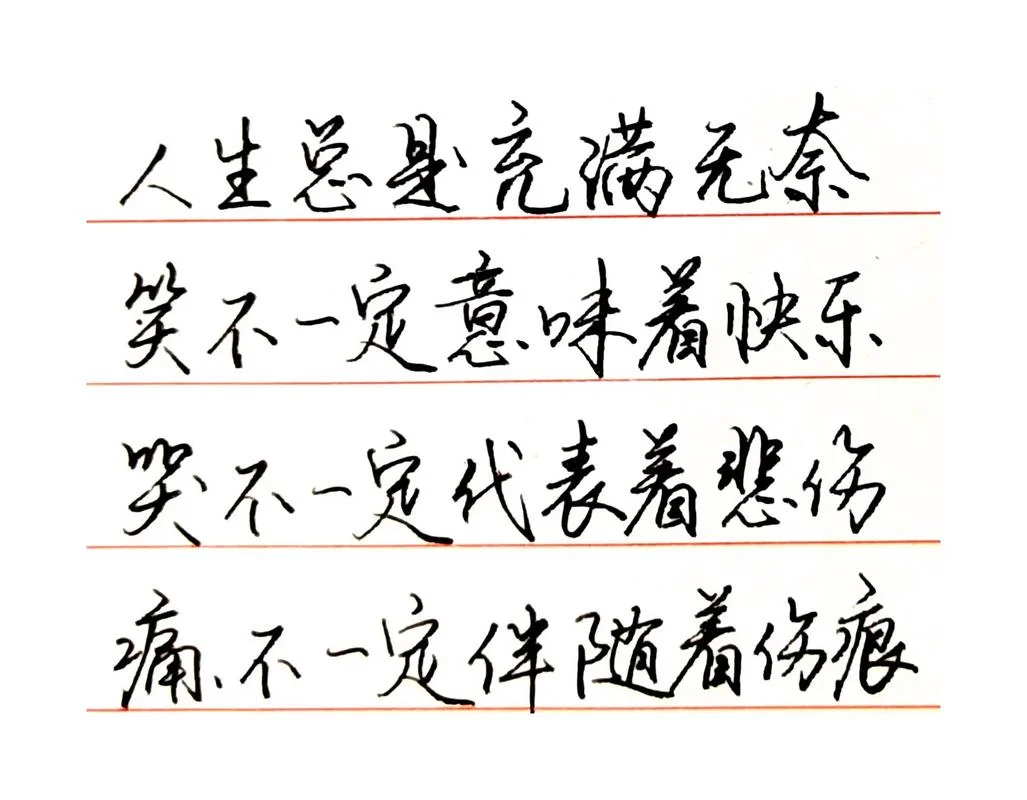 人生总是充满无奈
笑不一定意味着快乐
哭不一定代表着悲伤
痛不一定伴随着伤痕